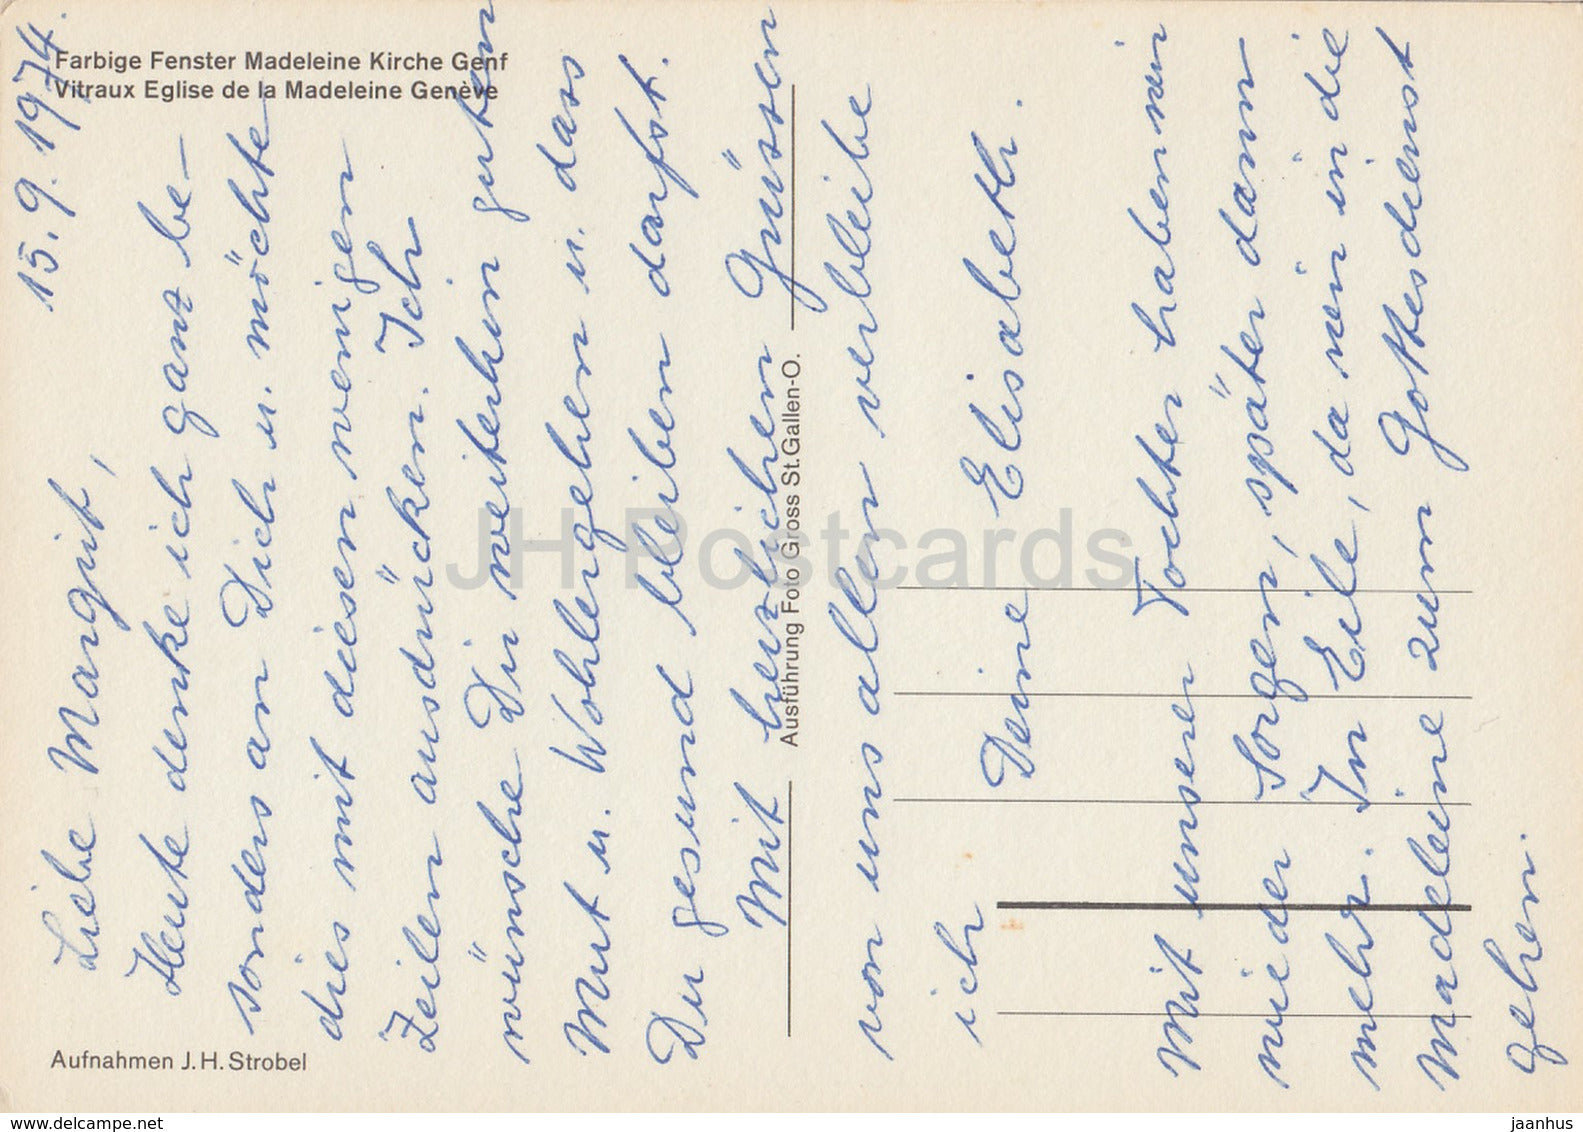 Farbige Fenster Madeleine Kirche Genf
Vitraux Eglise de la Madeleine Genève
15.9.1974.
Liebe Margrit,
Heute denke ich ganz be-
sonders an Dich u. möchte
dies mit diesen wenigen
Zeilen ausdrücken. Ich
wünsche Dir weiterhin guten
Mut u. Wohlergehen u. dass
Du gesund bleiben darfst.
Mit herzlichen Grüssen
von uns allen verbleibe
ich
Deine Elisabeth.
Mit unser Tochter haben wir
wieder Sorgen, später dann
mehr. In Eile, da wir in die
Madeleine zum Gottesdienst
gehen.
Ausführung Foto Gross St.Gallen-O.
Aufnahmen J.H.Strobel
JH Postcards
www.delcampe.net
jaanhus